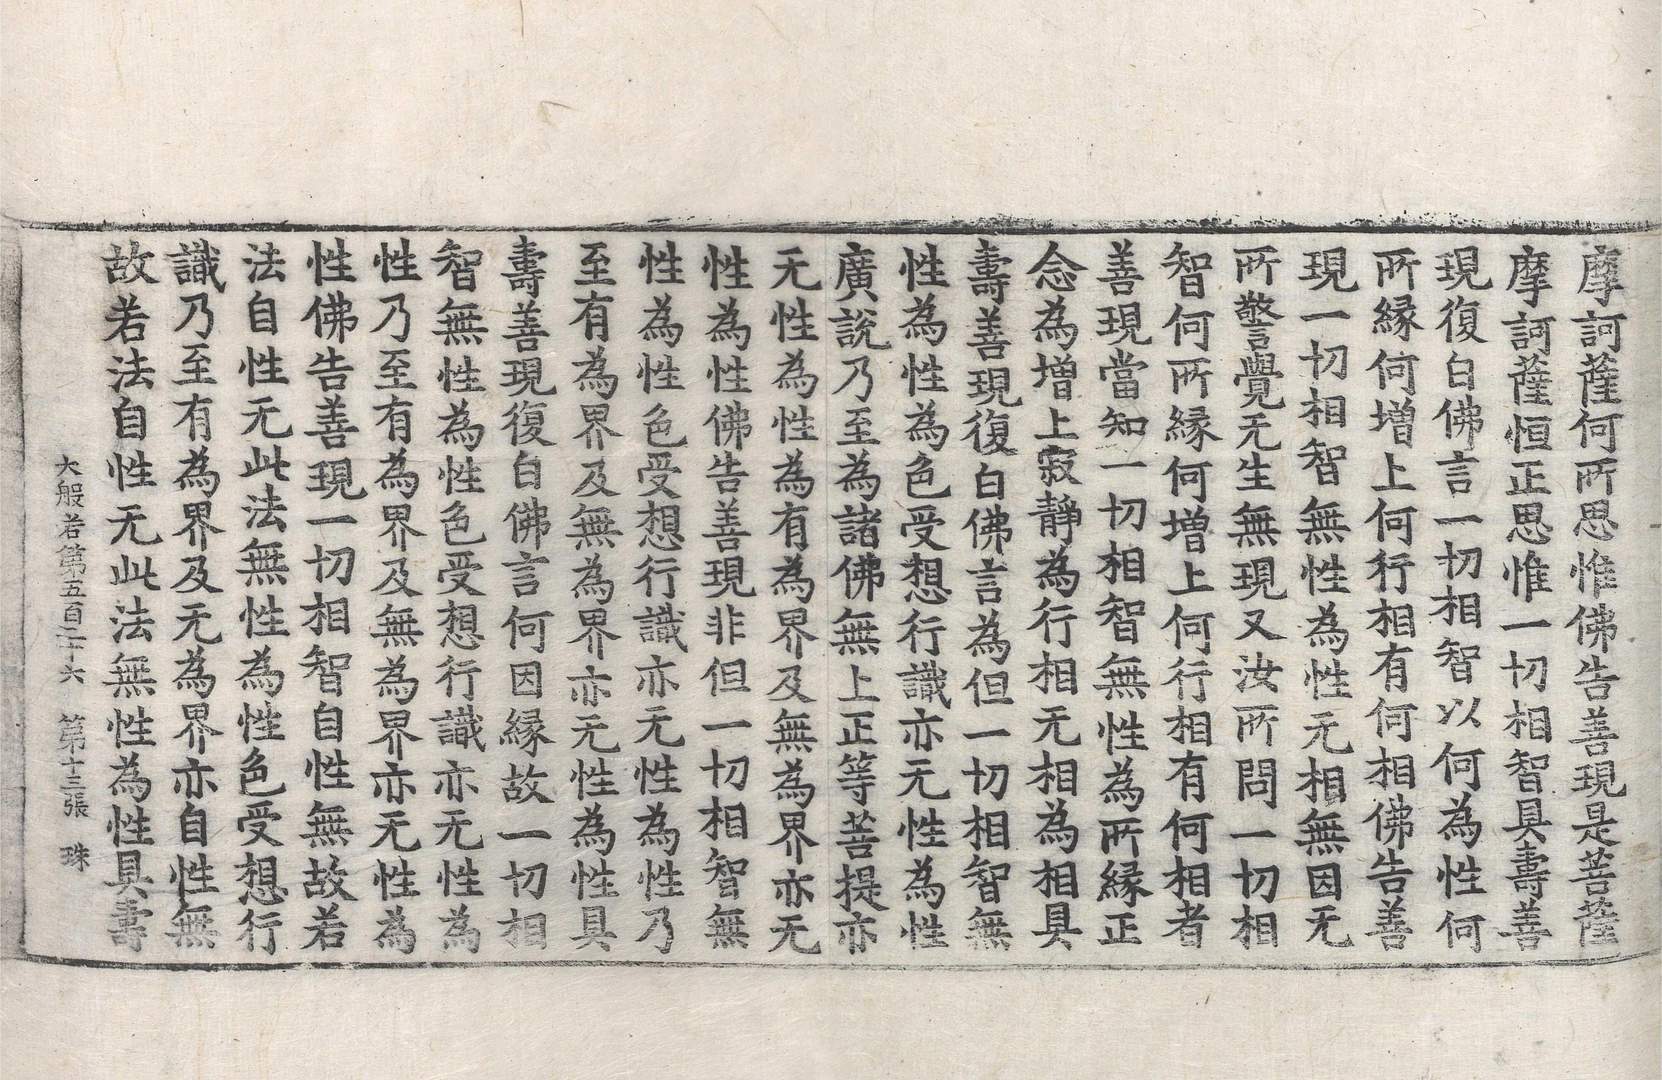 摩訶薩何所思惟佛告善現是菩薩
摩訶薩恒正思惟一切相智具壽善
現復白佛言一切相智以何為性何
所縁何増上何行相有何相佛告善
現一切相智無性為性无相無因无
所警覺无生無現又汝所問一切相
智何所縁何増上何行相有何相者
善現當知一切相智無性為所縁正
念為増上寂靜為行相无相為相具
壽善現復白佛言為但一切相智無
性為性為色受想行識亦无性為性
廣説乃至為諸佛無上正等菩提亦
无性為性為有為界及無為界亦无
性為性佛告善現非但一切相智無
性為性色受想行識亦无性為性乃
至有為界及無為界亦无性為性具
壽善現復白佛言何因縁故一切相
智無性為性色受想行識亦无性為
性乃至有為界及無為界亦无性為
性佛告善現一切相智自性無故若
法自性无此法無性為性色受想行
識乃至有為界及无為界亦自性無
故若法自性无此法無性為性具壽
大般若第五百二十六 第十三張 珠